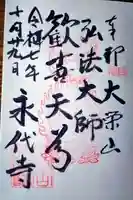 奉拝 大栄山
弘法大師
歓喜天尊
永代寺
令和七年
十月廿九日